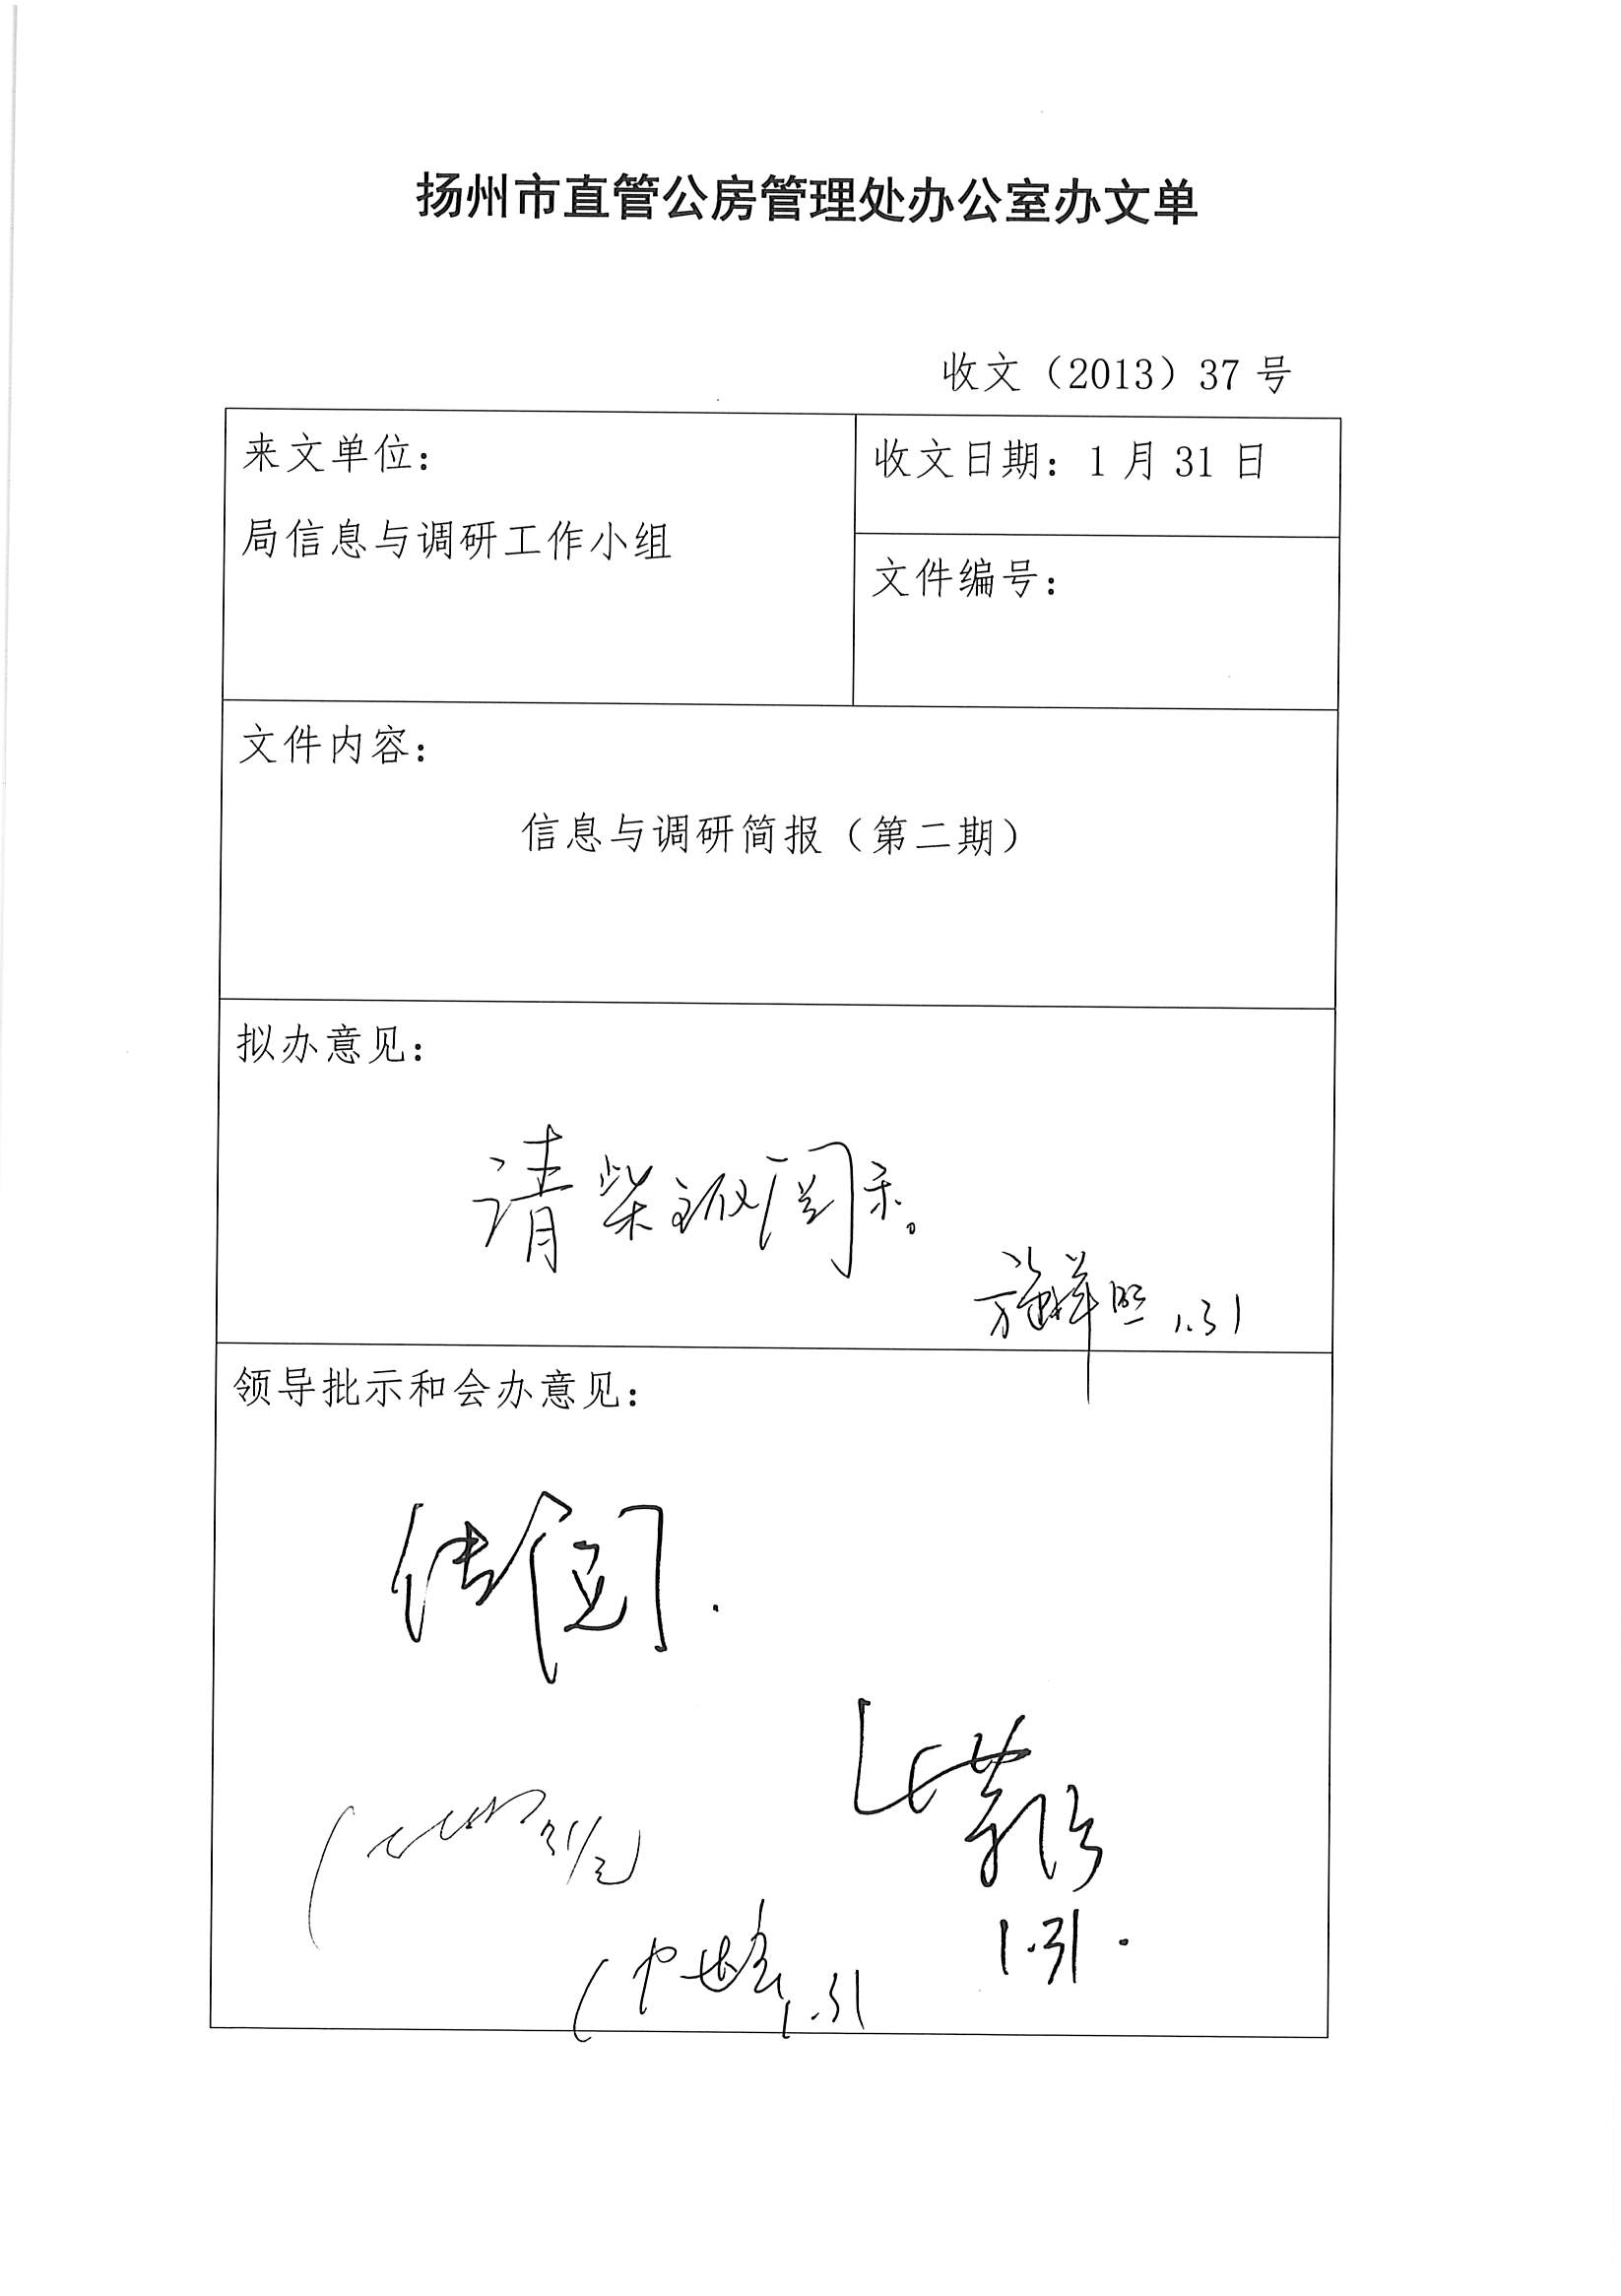 扬州市直管公房管理处办公室办文单
收文（2013）37 号
来文单位：
局信息与调研工作小组
收文日期：1 月 31 日
文件编号：
文件内容：
信息与调研简报（第二期）
拟办意见：
请柴主任阅示。
施祥熙 1.31
领导批示和会办意见：
传阅.
1.31.
1.31